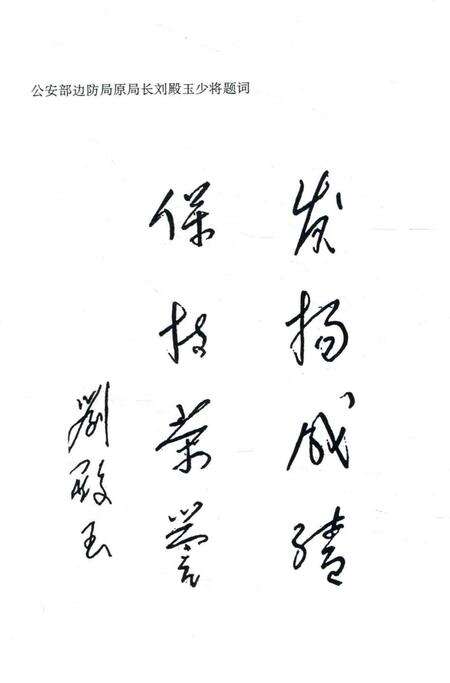 公安部边防局原局长刘殿玉少将题词
发扬成绩
保持荣誉
劉殿玉